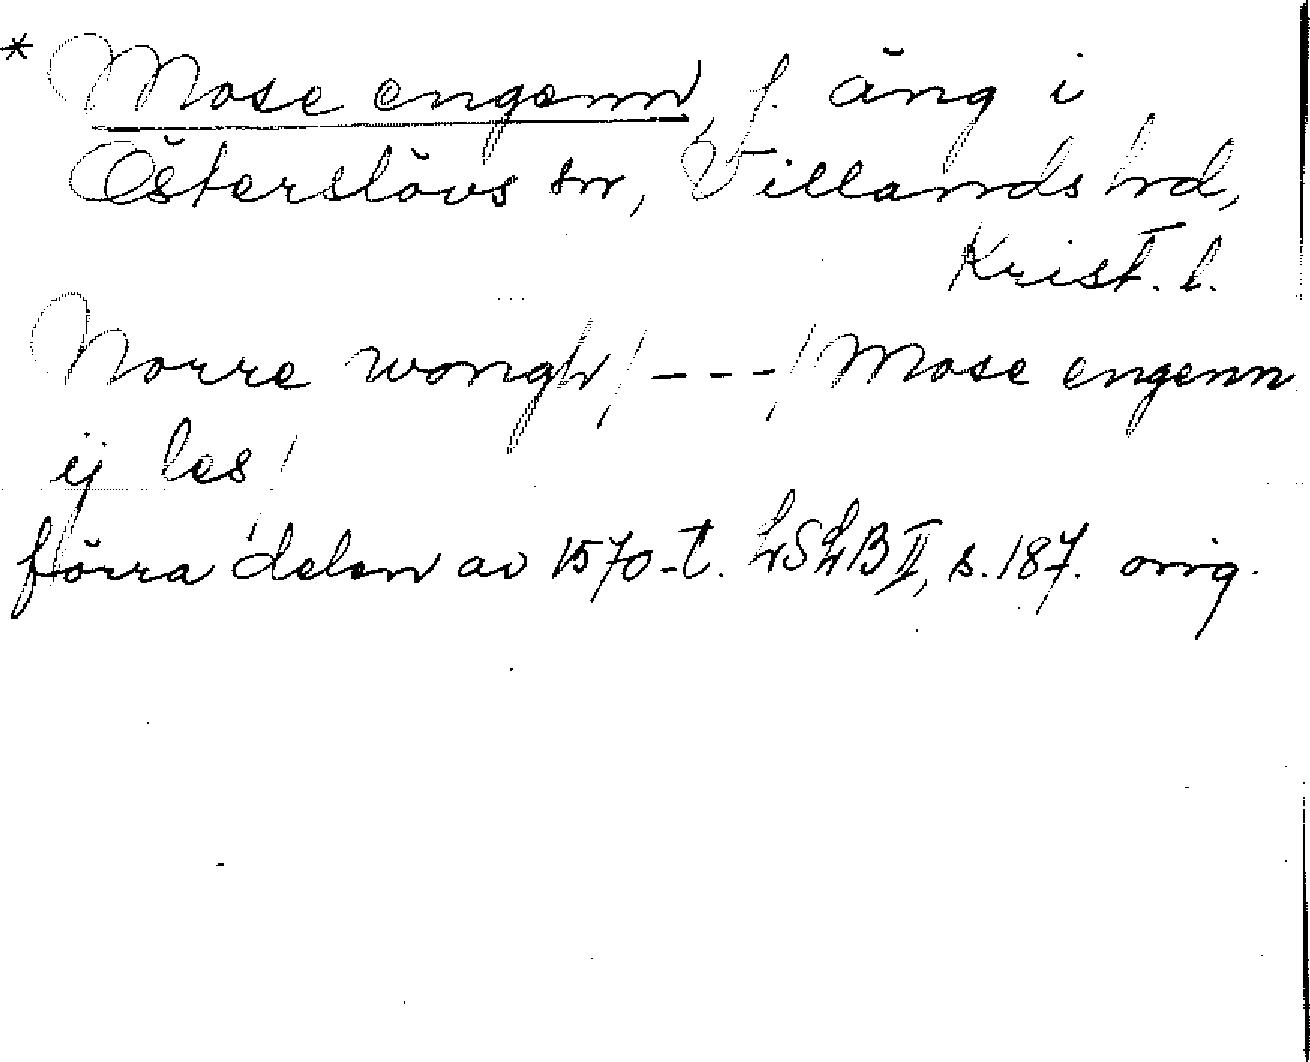 * Mose engenn, f. äng i
Österslövs sn, Villands hd,
Krist. l.
Norre wongh / --- / Mose engenn
ij les /
förra delen av 1570-t. LSLB II, s. 187. orig.